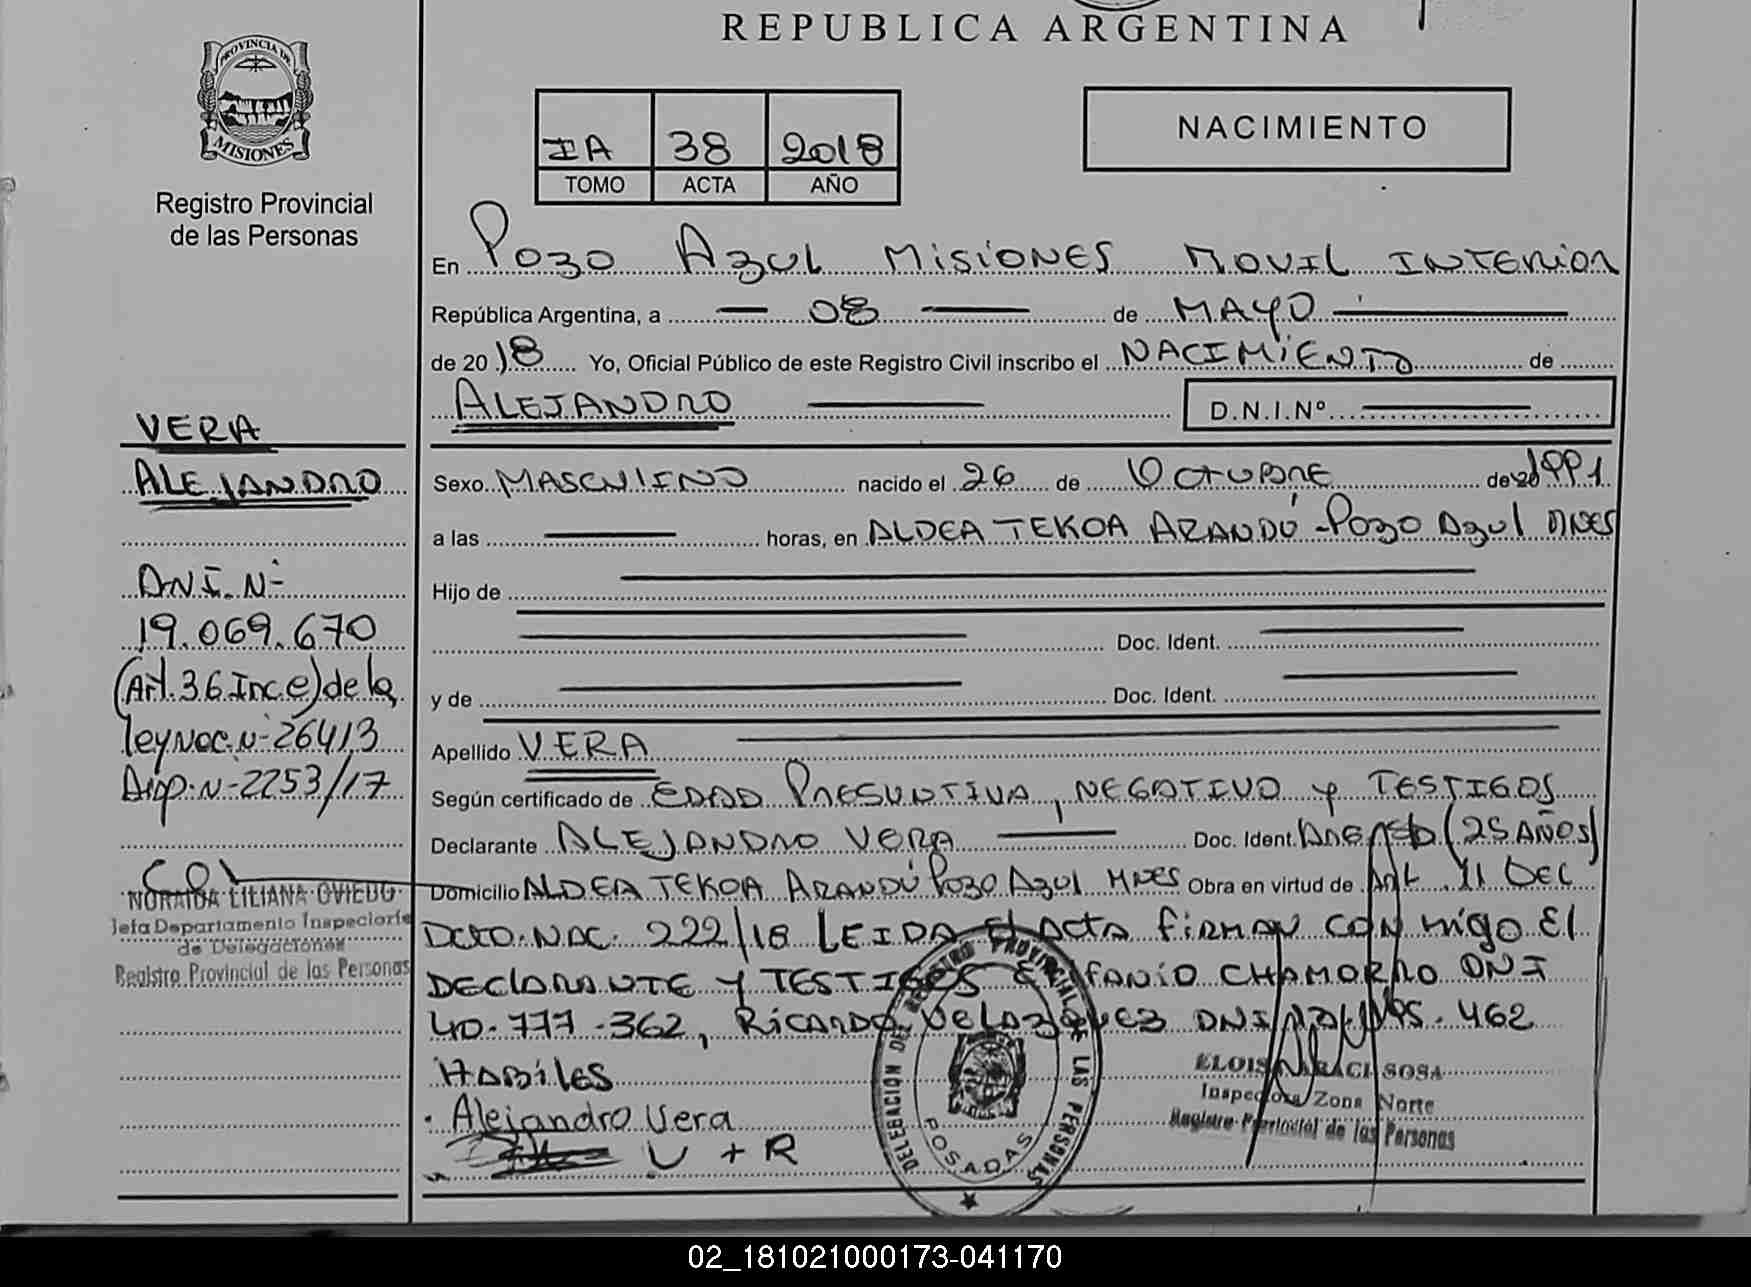 REPUBLICA ARGENTINA
PROVINCIA DE
MISIONES
Registro Provincial
de las Personas
IA 38 2018
TOMO ACTA AÑO
NACIMIENTO
En Pozo Azul Misiones Movil Interior
República Argentina, a 08 de MAYO
de 2018 Yo, Oficial Público de este Registro Civil inscribo el NACIMIENTO de
ALEJANDRO D.N.I.Nº
VERA
ALEJANDRO
D.N.I. Nº
19.069.670
(Art. 36 Inc. e) de la
ley Nac. Nº 26413
Disp. Nº 2253/17
NORAIDA LILIANA OVIEDO
Jefa Departamento Inspectoría
de Delegaciones
Registro Provincial de las Personas
Sexo MASCULINO nacido el 26 de Octubre de 1991
a las horas, en ALDEA TEKOA ARANDÚ - Pozo Azul MNES
Hijo de
Doc. Ident.
y de Doc. Ident.
Apellido VERA
Según certificado de EDAD PRESUNTIVA, NEGATIVO y TESTIGOS
Declarante ALEJANDRO VERA Doc. Ident. (25 AÑOS)
Domicilio ALDEA TEKOA ARANDÚ Pozo Azul MNES Obra en virtud de Art. 11 DEC
DCTO. NAC. 222/18 LEIDA El ACTA firman CON migo El
DECLARANTE y TESTIGOS EPIFANIO CHAMORRO DNI
40.777.362, RICARDO VELAZQUEZ DNI 462
HABiles
Alejandro Vera
V + R
DELEGACION DEL REGISTRO PROVINCIAL DE LAS PERSONAS
POSADAS
ELOISA ARACI SOSA
Inspectora Zona Norte
Registro Provincial de las Personas
02_181021000173-041170